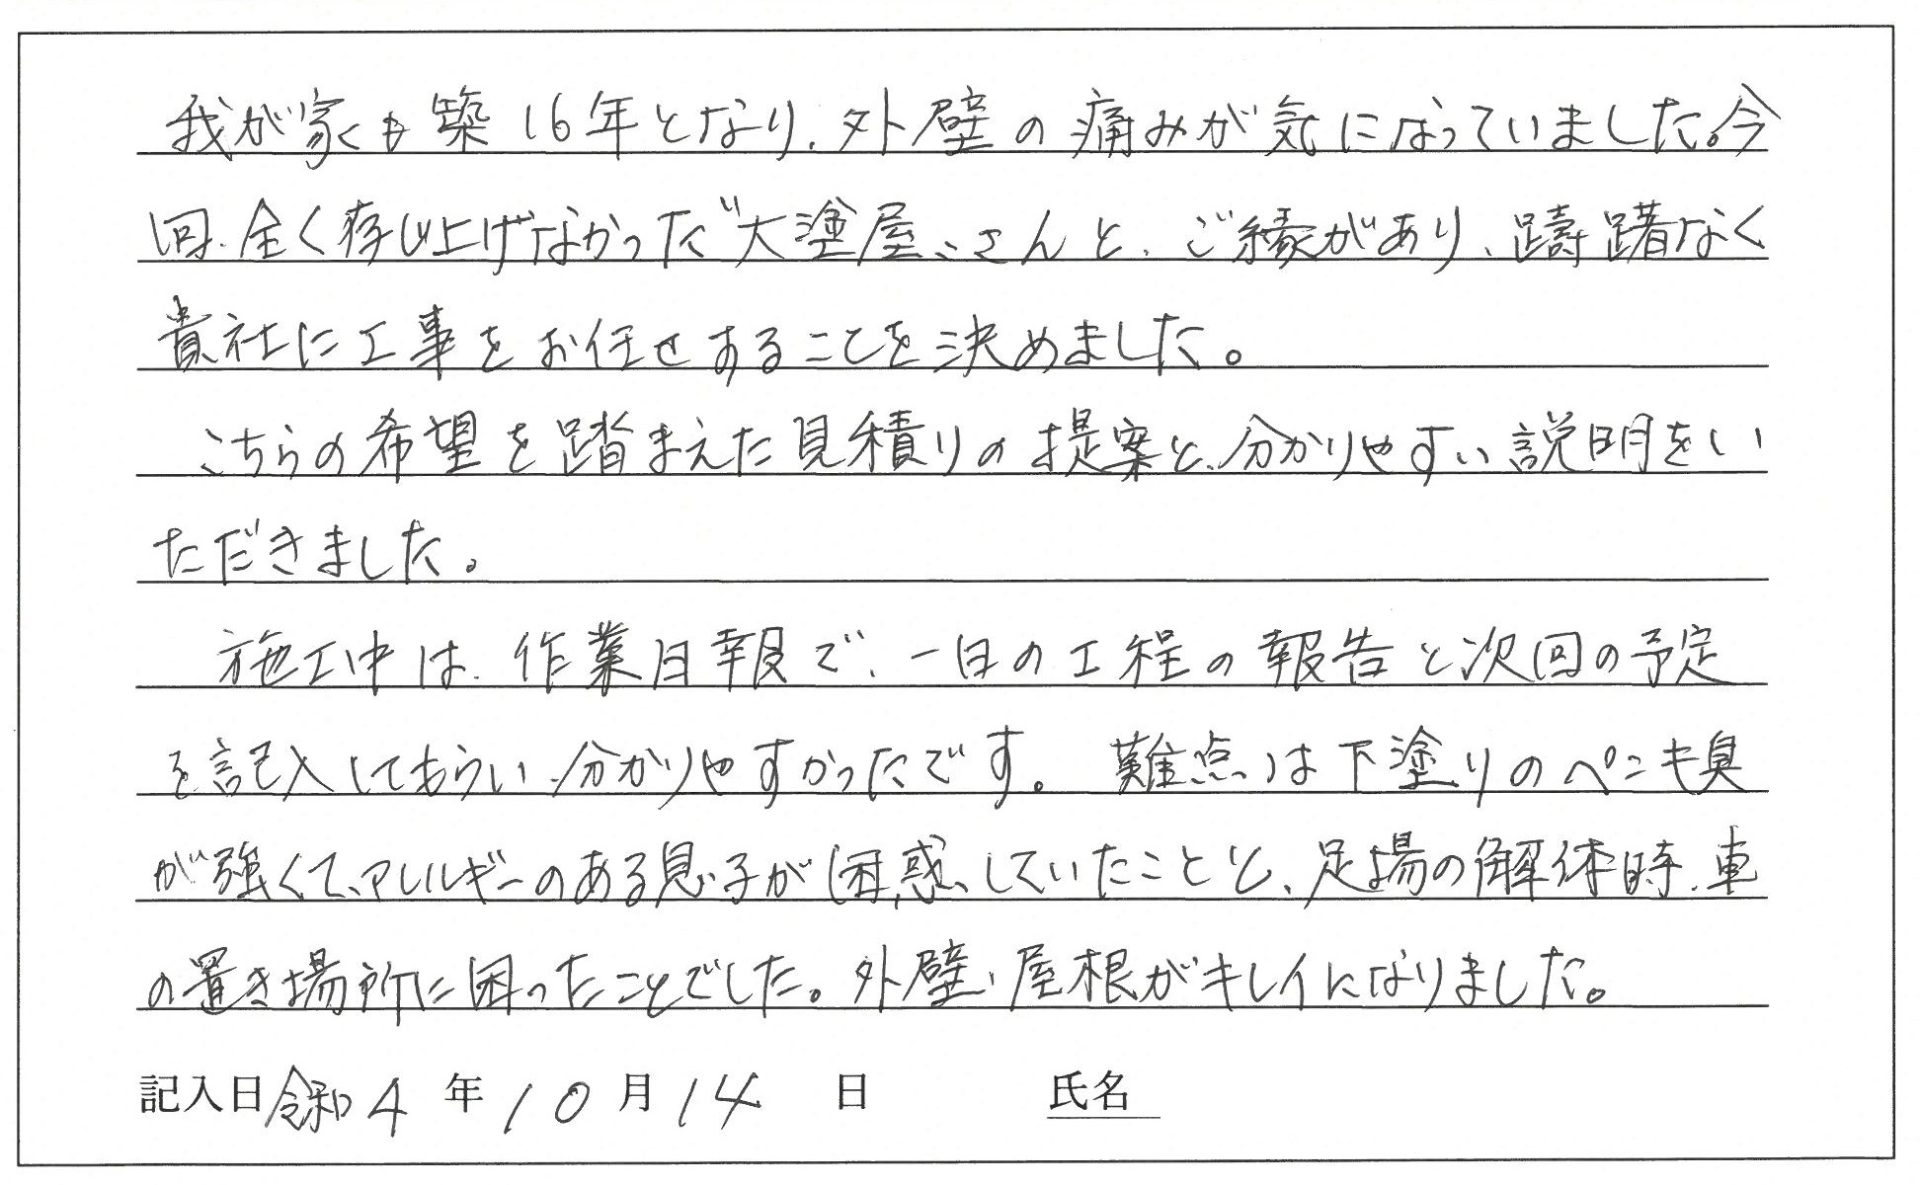 我が家も築16年となり、外壁の痛みが気になっていました。今
回、全く存じ上げなかった"大塗屋"さんと、ご縁があり、躊躇なく
貴社に工事をお任せすることを決めました。
こちらの希望を踏まえた見積りの提案と、分かりやすい説明をい
ただきました。
施工中は、作業日報で、一日の工程の報告と次回の予定
を記入してもらい、分かりやすかったです。難点は下塗りのペンキ臭
が強くて、アレルギーのある息子が困惑していたことと、足場の解体時、車
の置き場所に困ったことでした。外壁、屋根がキレイになりました。
記入日 令和4年10月14日 氏名